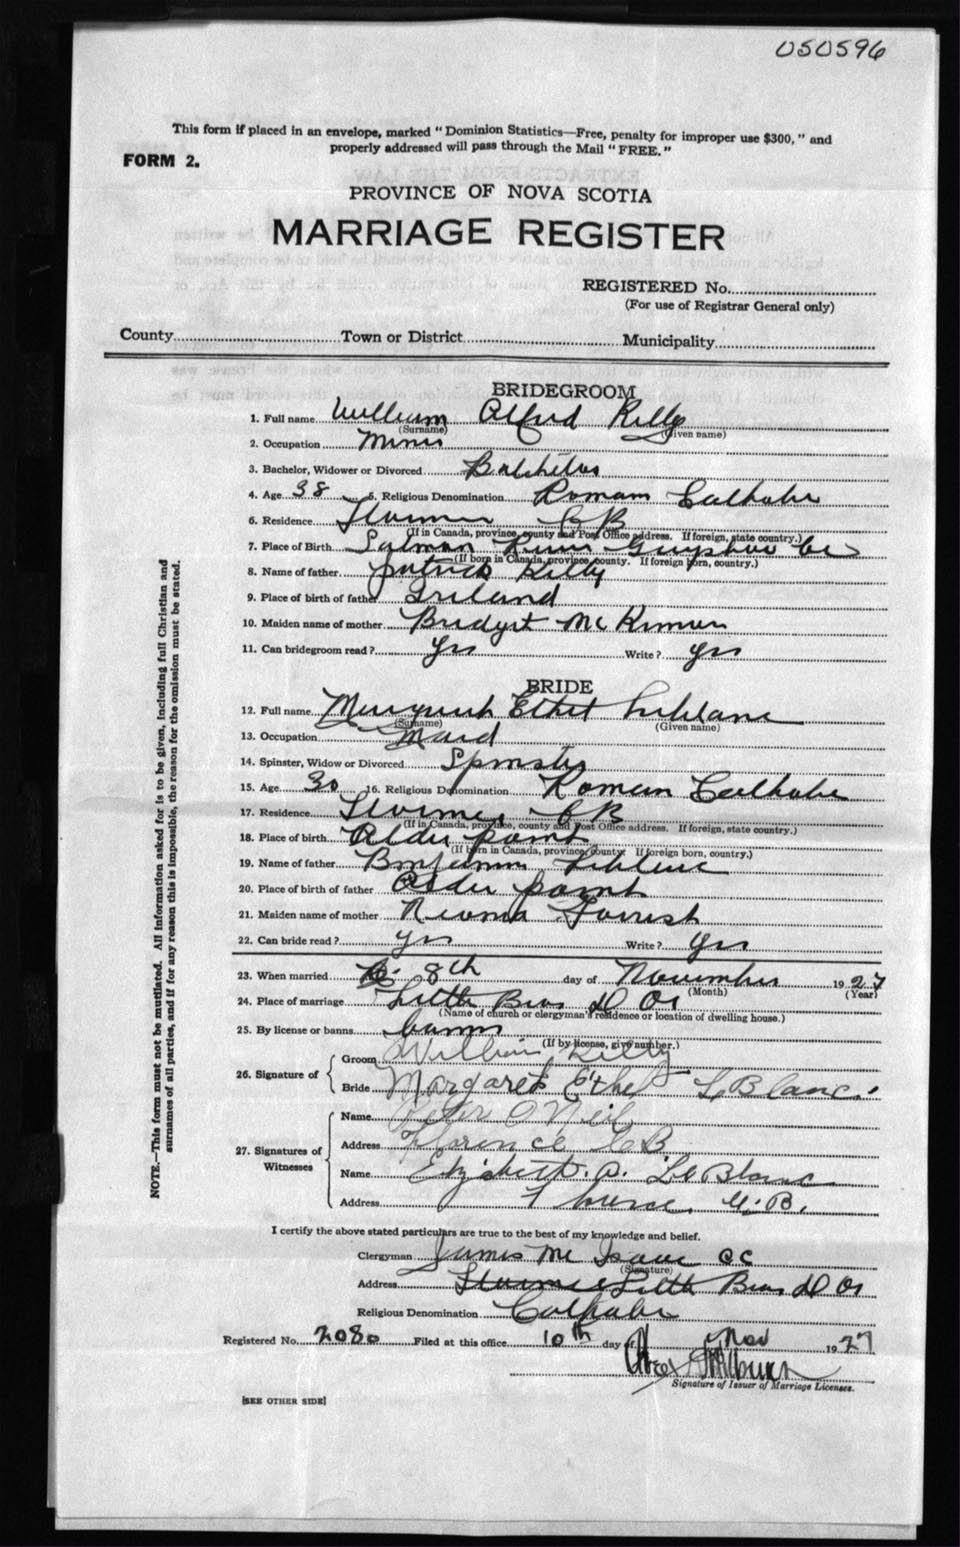 050596
This form if placed in an envelope, marked "Dominion Statistics—Free, penalty for improper use $300," and
properly addressed will pass through the Mail "FREE."
FORM 2.
PROVINCE OF NOVA SCOTIA
MARRIAGE REGISTER
REGISTERED No.
(For use of Registrar General only)
County Town or District Municipality
BRIDEGROOM
1. Full name William Alfred Kelly
(Surname) (Given name)
2. Occupation Miner
3. Bachelor, Widower or Divorced Batchelor
4. Age 38 5. Religious Denomination Roman Catholic
6. Residence Florence C B
(If in Canada, province, county and Post Office address. If foreign, state country.)
7. Place of Birth Salmon River Guysboro Co
(If born in Canada, province, county. If foreign born, country.)
8. Name of father Patrick Kelly
9. Place of birth of father Ireland
10. Maiden name of mother Bridget Mc
11. Can bridegroom read? Yes Write? Yes
BRIDE
12. Full name Margaret Ethel Leblanc
(Surname) (Given name)
13. Occupation Maid
14. Spinster, Widow or Divorced Spinster
15. Age 30 16. Religious Denomination Roman Catholic
17. Residence Florence C B
(If in Canada, province, county and Post Office address. If foreign, state country.)
18. Place of birth Alder point
(If born in Canada, province, county. If foreign born, country.)
19. Name of father Benjamin Leblanc
20. Place of birth of father Alder point
21. Maiden name of mother Forrest
22. Can bride read? Yes Write? Yes
23. When married 8th day of November 1927
(Month) (Year)
24. Place of marriage Little Bras d Or
(Name of church or clergyman's residence or location of dwelling house.)
25. By license or banns banns
(If by license, give number.)
26. Signature of
Groom William Kelly
Bride Margaret Ethel LeBlanc
27. Signatures of Witnesses
Name Peter O'Neil
Address Florence C B
Name Elizabeth A. LeBlanc
Address Florence C.B.
I certify the above stated particulars are true to the best of my knowledge and belief.
Clergyman James Mc Isaac
(Signature)
Address Florence Little Bras d Or
Religious Denomination Catholic
Registered No. 2080 Filed at this office 10th day of Nov 1927
Signature of Issuer of Marriage Licenses.
[SEE OTHER SIDE]
NOTE.—This form must not be mutilated. All information asked for is to be given, including full Christian and
surnames of all parties, and if for any reason this is impossible, the reason for the omission must be stated.